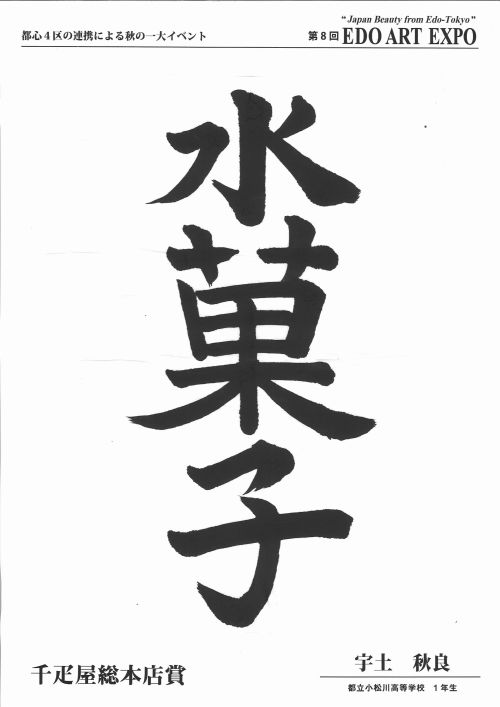 "Japan Beauty from Edo-Tokyo"
都心4区の連携による秋の一大イベント
第8回 EDO ART EXPO
水菓子
千疋屋総本店賞
宇土 秋良
都立小松川高等学校 1年生